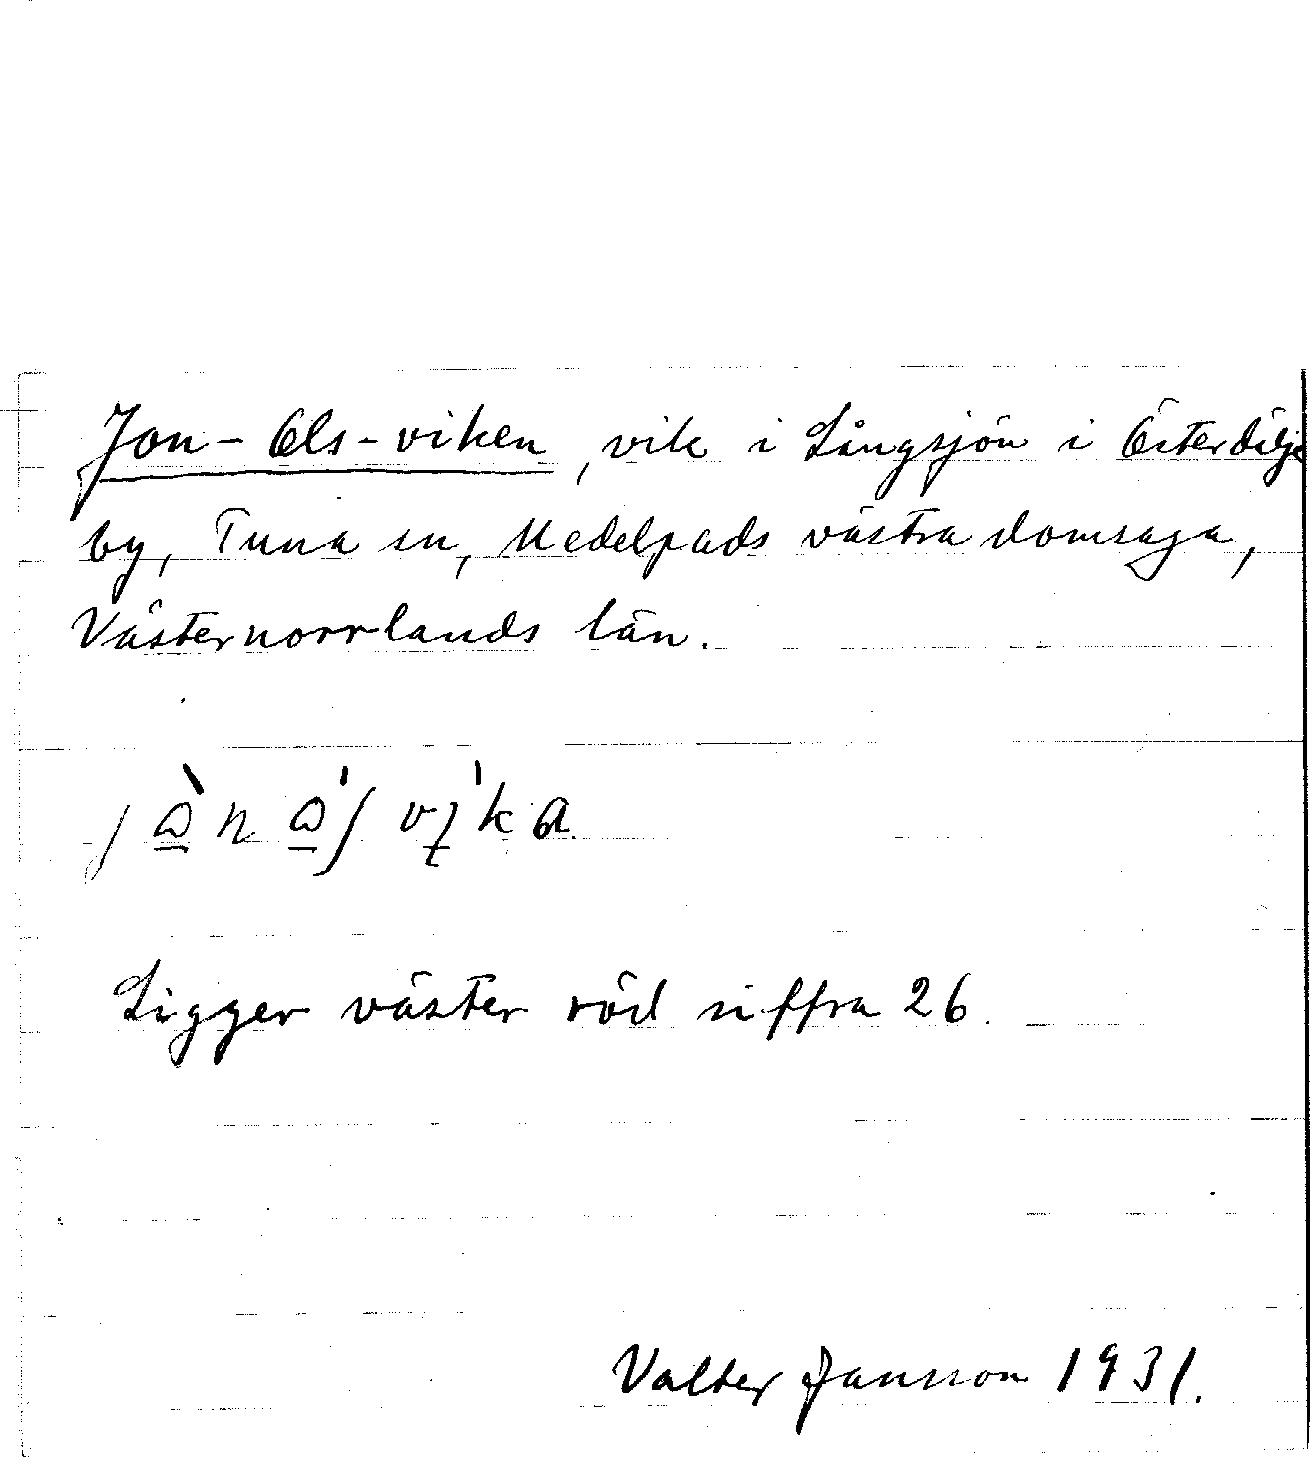 Jon-Ols-viken, vik i Långsjön i Österdälje
by, Tuna sn, Medelpads västra domsaga,
Västernorrlands län.
Ligger väster röd siffra 26.
Valter Jansson 1931.